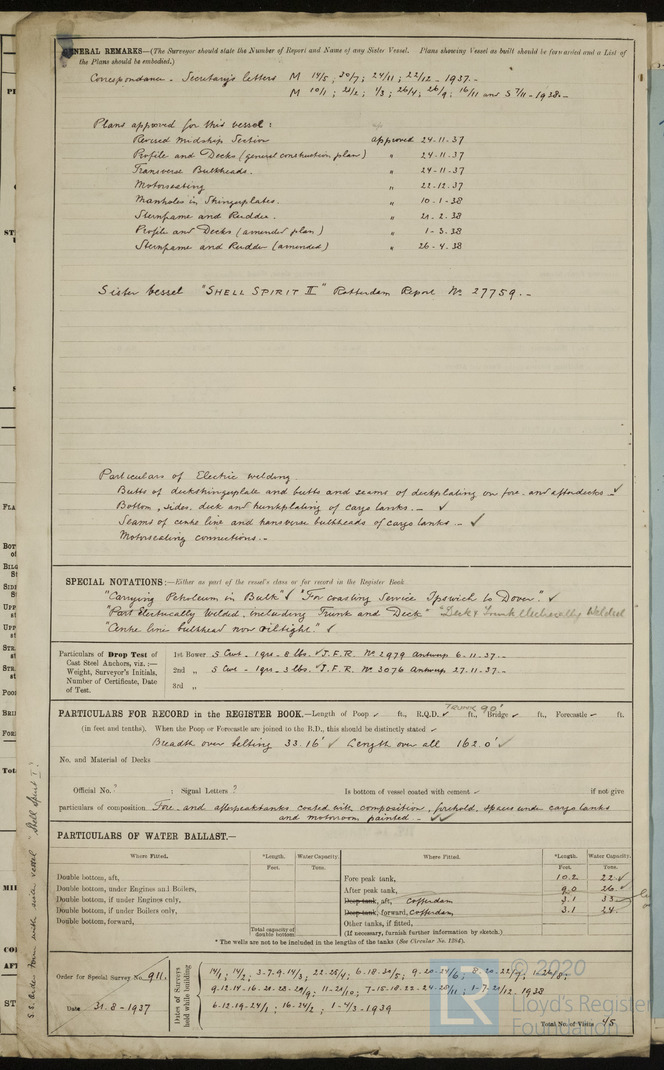 GENERAL REMARKS—(The Surveyor should state the Number of Report and Name of any Sister Vessel. Plans showing Vessel as built should be forwarded and a List of
the Plans should be embodied.)
Correspondence. Secretary's letters M 14/5; 30/7; 24/11; 22/12 - 1937.-
M 10/1; 21/2; 1/3; 26/4; 26/9; 16/11 and S 7/11 - 1938.-
Plans approved for this vessel:
Revised midship Section approved 24-11-37
Profile and Decks (general construction plan) " 24-11-37
Transverse Bulkheads. " 24-11-37
Motorseating " 22-12-37
Manholes in Stringerplates. " 10-1-38
Sternframe and Rudder. " 21.2.38
Profile and Decks (amended plan) " 1-3.38
Sternframe and Rudder (amended) " 26-4.38
Sister vessel "SHELL SPIRIT II" Rotterdam Report No. 27759.-
Particulars of Electric welding
Butts of deckstringerplate and butts and seams of deckplating on fore- and afterdecks.- ✓
Bottom, sides, deck and trunkplating of cargo tanks.- ✓
Seams of centre line and transverse bulkheads of cargo tanks.- ✓
Motorseating connections.-
SPECIAL NOTATIONS:—Either as part of the vessel's class or for record in the Register Book.
"Carrying Petroleum in Bulk" ✓ "For coasting Service Ipswich to Dover". ✓
"Part Electrically Welded, including Trunk and Deck" "Deck & Trunk Electrically Welded
"Centre line bulkhead non oiltight." ✓
Particulars of Drop Test of
Cast Steel Anchors, viz.:—
Weight, Surveyor's Initials,
Number of Certificate, Date
of Test.
1st Bower. 5 Cwt - 1qrs - 8 lbs. ✓ J.F.R. No. 2979 Antwerp 6-11-37.-
2nd " 5 Cwt - 1qrs - 3 lbs. ✓ J.F.R. No. 3076 Antwerp 27-11-37.-
3rd "
TRUNK 90'
PARTICULARS FOR RECORD in the REGISTER BOOK.—Length of Poop ✓ ft., R.Q.D. ✓ ft., Bridge ✓ ft., Forecastle ✓ ft.
(in feet and tenths). When the Poop or Forecastle are joined to the B.D., this should be distinctly stated ✓
Breadth over belting 33.16' ✓ Length over all 162.0' ✓
No. and Material of Decks
Official No. ? : Signal Letters ? Is bottom of vessel coated with cement ✓ if not give
particulars of composition Fore- and afterpeaktanks coated with composition, forehold, spaces under cargo tanks
and motorroom painted.-
PARTICULARS OF WATER BALLAST.—
Where Fitted. *Length. Water Capacity. Where Fitted. *Length. Water Capacity.
Feet. Tons. Feet. Tons.
Double bottom, aft, Fore peak tank, 10.2 22 ✓
Double bottom, under Engines and Boilers, After peak tank, 9.0 26 ✓
Double bottom, if under Engines only, Deep tank, aft, Cofferdam 3.1 33
Double bottom, if under Boilers only, Deep tank, forward, Cofferdam 3.1 24
Double bottom, forward, Other tanks, if fitted,
Total capacity of
double bottom
(If necessary, furnish further information by sketch.)
* The wells are not to be included in the lengths of the tanks (See Circular No. 1284).
Order for Special Survey No. 911.
Date 31-8-1937
Dates of Surveys
held while building
14/1; 14/2; 3-7-9-14/3; 22-25/4; 6-18-20/5; 9-20-24/6; 8-20-22/7; 1-26/8;
9-12-14-16-20-23-29/9; 11-21/10; 7-15-18-22-24-28/11; 1-7-21/12 - 1938
6-12-19-24/1; 16-24/2; 1-4/3 - 1939
Total No. of Visits 45
© 2020
Lloyd's Register
Foundation
LR